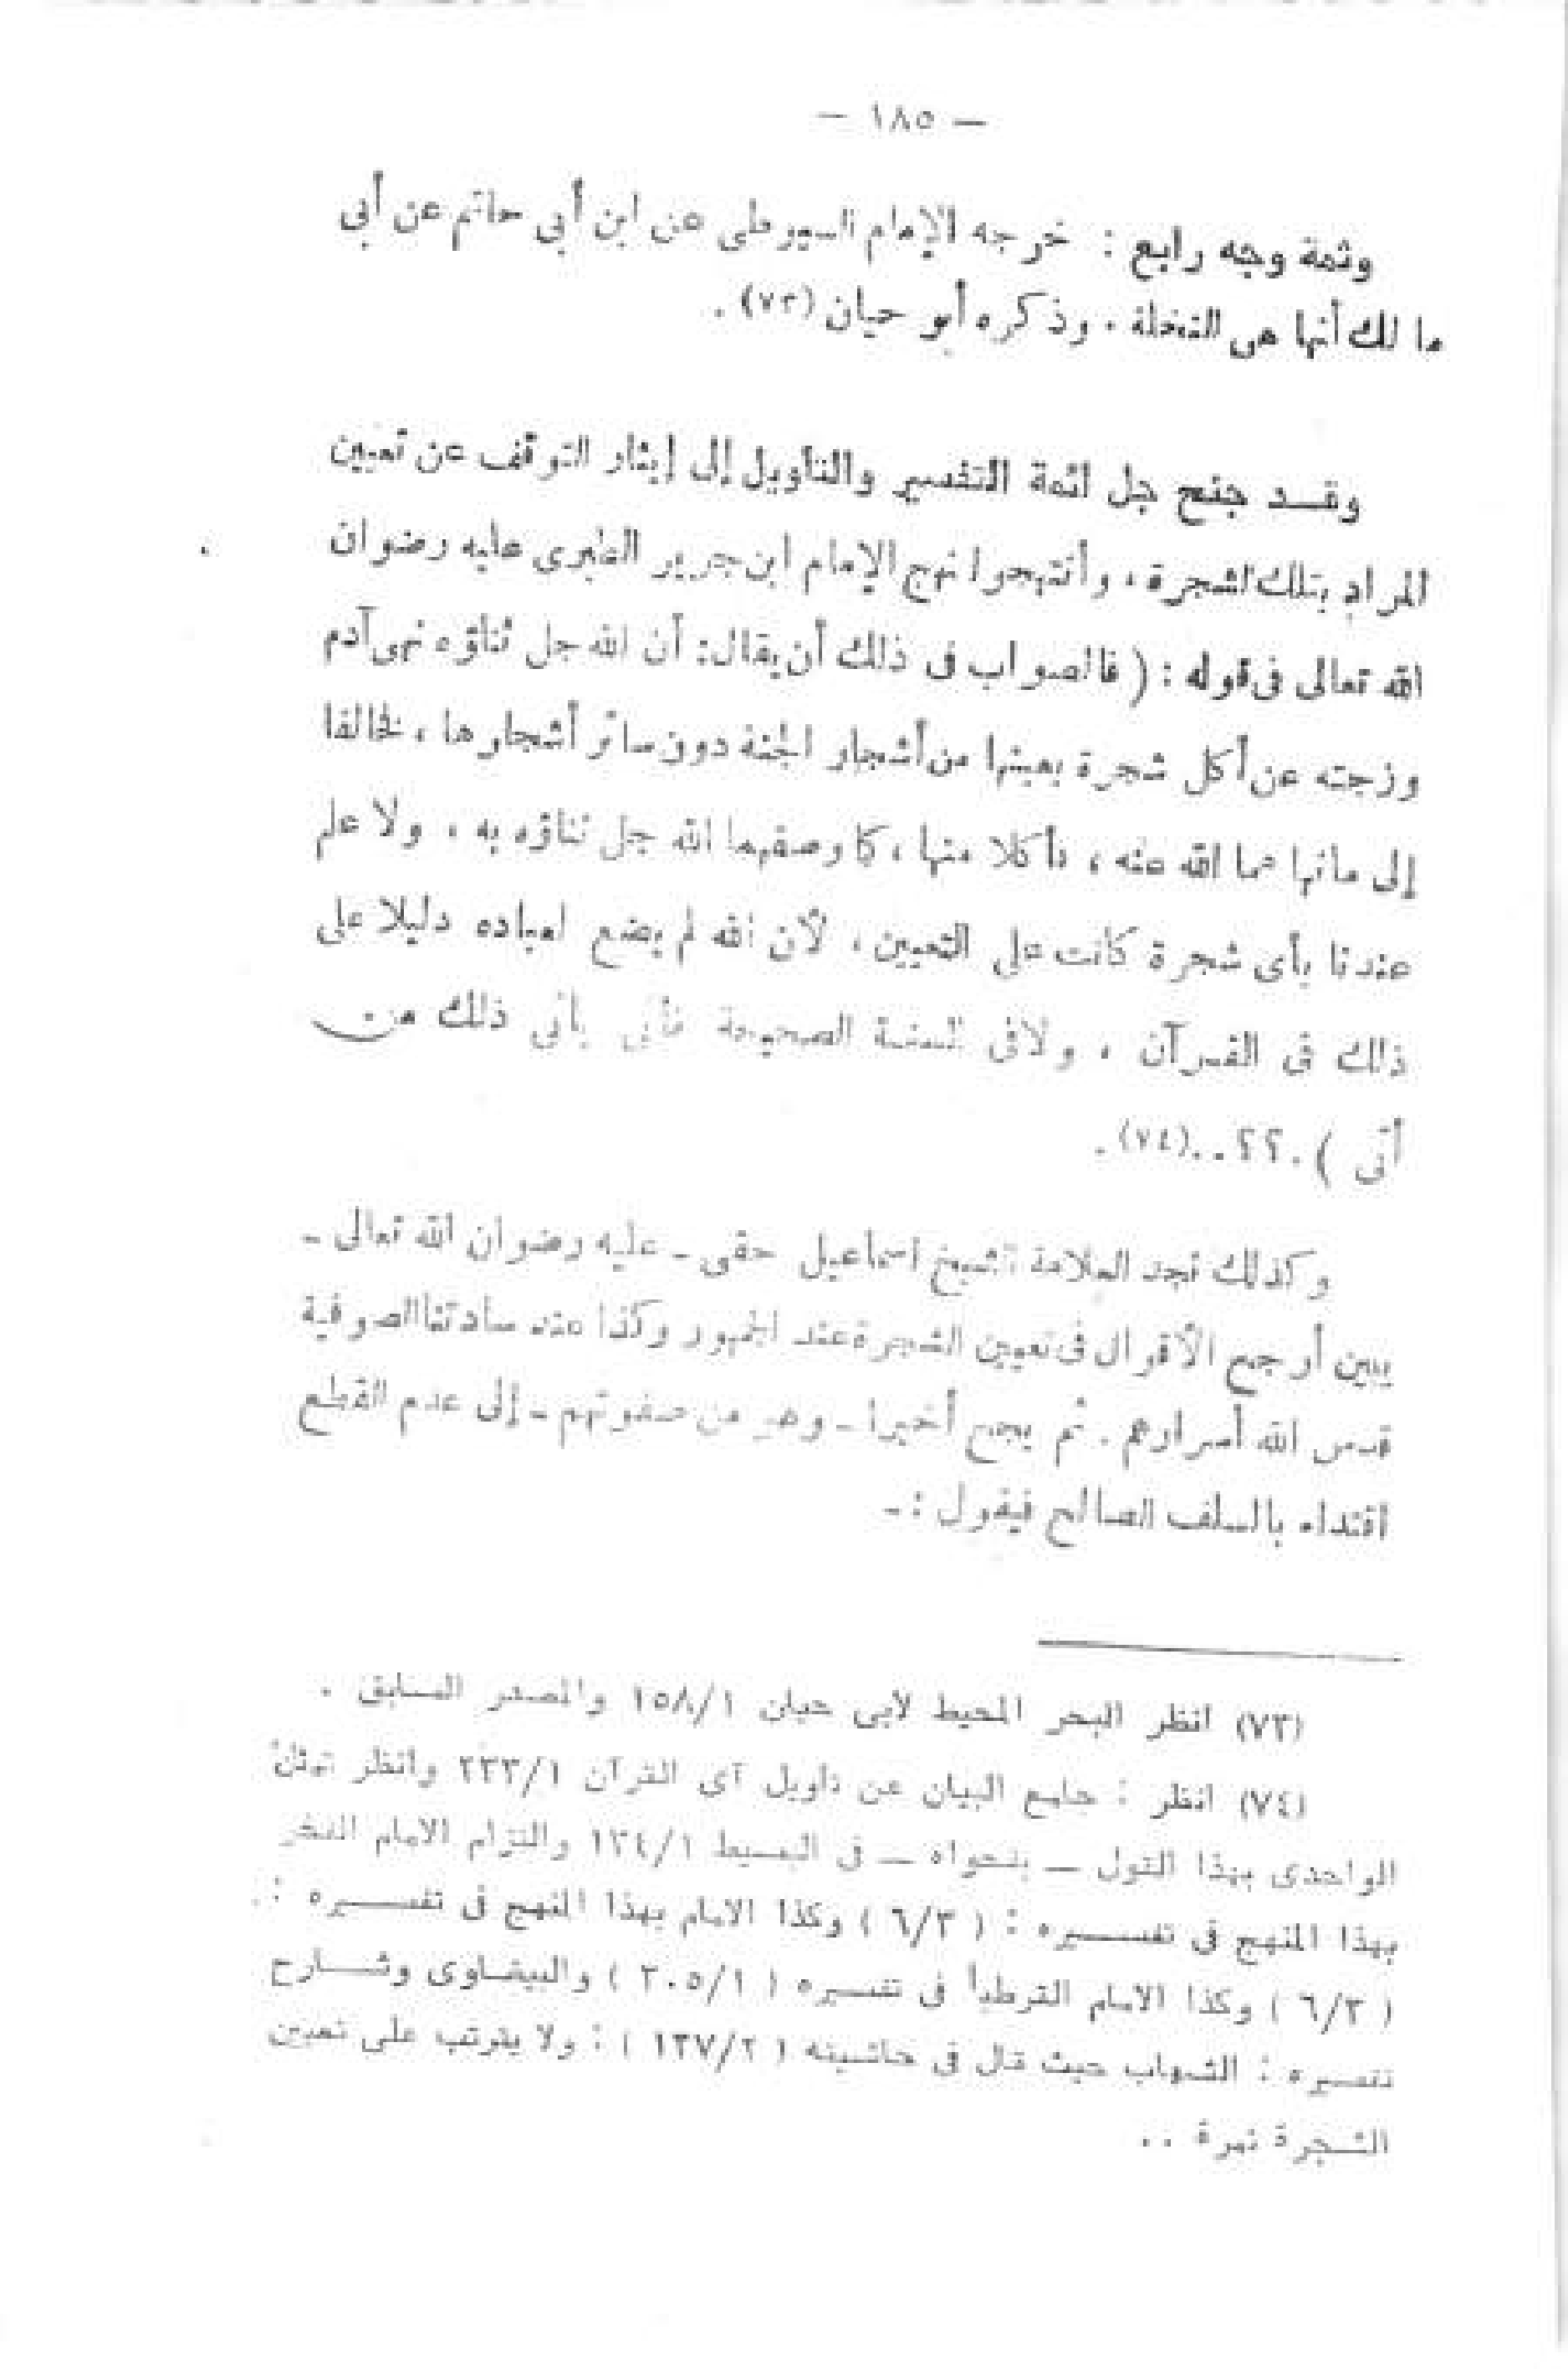 — ١٨٥ —
وثمة وجه رابع : خرجه الإمام السيوطى عن ابن أبى حاتم عن أبى
مالك أنها هى النخلة . وذكره أبو حيان (٧٣) .
وقـد جنح جل أئمة التفسير والتأويل إلى إيثار التوقف عن تعيين
المراد بتلك الشجرة ، وأنتهجوا نهج الإمام ابن جرير الطبرى عليه رضوان
الله تعالى فى قوله : ( فالصواب فى ذلك أن يقال: أن الله جل ثناؤه نهى آدم
وزجته عن أكل شجرة بعينها من أشجار الجنة دون سائر أشجارها ، فخالفا
إلى مانهاهما الله عنه ، فأكلا منها ، كما وصفهما الله جل ثناؤه به ، ولا علم
عندنا بأى شجرة كانت على التعيين ، لأن الله لم يضع لعباده دليلا على
ذلك فى القرآن ، ولافى السنة الصحيحة فأنى يأتى ذلك من
أتى ) .؟؟..(٧٤) .
وكذلك نجد العلامة الشيخ اسماعيل حقى - عليه رضوان الله تعالى -
يبين أرجح الأقوال فى تعيين الشجرة عند الجمهور وكذا عند سادتنا الصوفية
قدس الله أسرارهم . ثم يجنح أخيرا - وهو من صفوتهم - إلى عدم القطع
اقتداء بالسلف الصالح فيقول : -
(٧٣) انظر البحر المحيط لأبى حيان ١/١٥٨ والمصدر السابق .
(٧٤) انظر : جامع البيان عن تأويل آى القرآن ١/٢٣٣ وانظر
الواحدى بهذا القول — بفحواه — فى البسيط ١/١٢٤ والتزام الامام الفخر
بهذا المنهج فى تفســيره : ( ٦/٣ ) وكذا الامام بهذا المنهج فى تفســيره :
( ٦/٣ ) وكذا الامام القرطبى فى تفسـيره ( ٣٠٥/١ ) والبيضاوى وشـارح
تفسـيره : الشهاب حيث قال فى حاشيته ( ١٣٧/٢ ) : ولا يترتب على تعيين
الشـجرة ثمرة ..